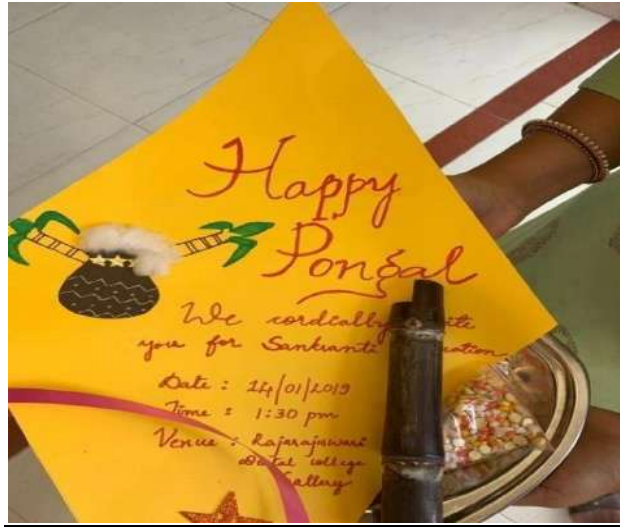 Happy
Pongal
We cordially
you for Sankranti
Date : 14/01/2019
Time : 1:30 pm
Venue : Rajarajeswari
Dental college
Gallery